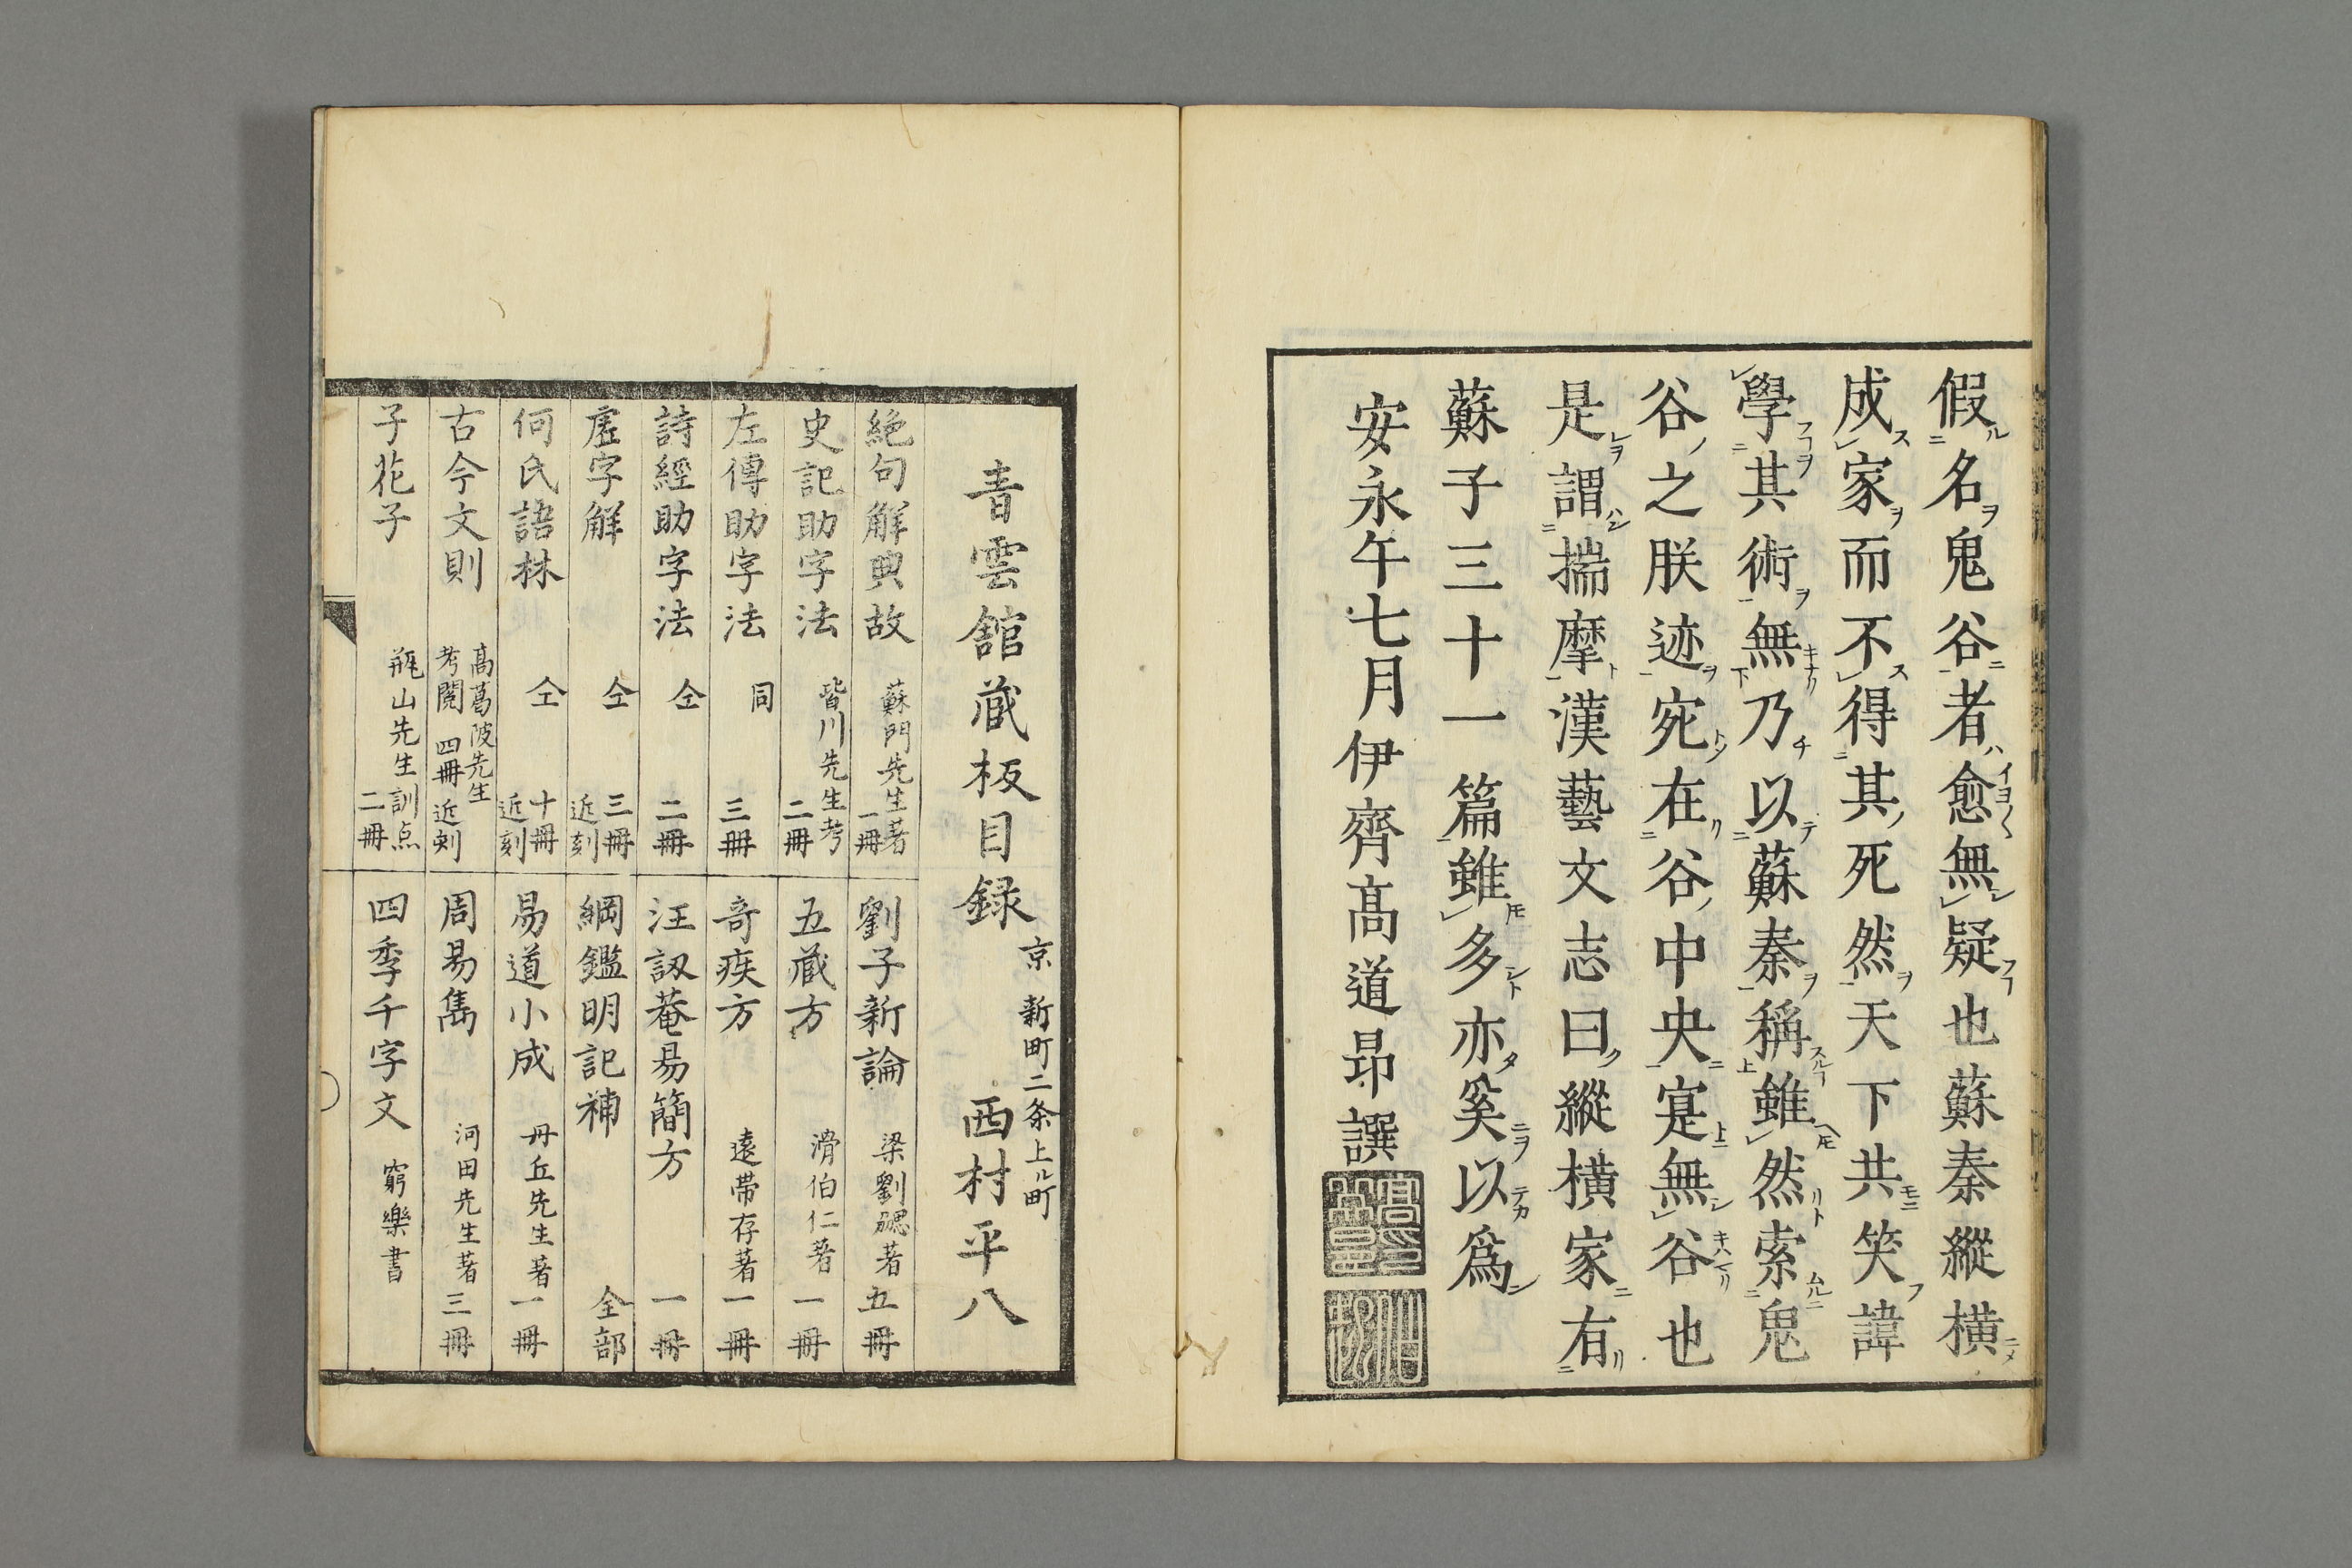 假名鬼谷者愈無疑也蘇秦縱横
成家而不得其死然天下共笑諱
學其術無乃以蘇秦稱雖然索鬼
谷之朕迹宛在谷中央寔無谷也
是謂揣摩漢藝文志曰縱横家有
蘇子三十一篇雖多亦奚以爲
安永午七月伊齊髙道昻譔
青雲舘藏板目録
京 新町二条上ル町
西村平八
絶句解典故 蘇門先生著 一冊
史記助字法 皆川先生考 二冊
左傳助字法 同 三冊
詩經助字法 仝 二冊
虗字解 仝 三冊 近刻
何氏語林 仝 十冊 近刻
古今文則 髙葛陂先生考閲 四冊 近刻
子花子 瓶山先生訓点 二冊
劉子新論 梁劉勰著 五冊
五藏方 滑伯仁著 一冊
奇疾方 遠帯存著 一冊
汪訒菴易簡方 一冊
綱鑑明記補 全部
易道小成 丹丘先生著 一冊
周易雋 河田先生著 三冊
四季千字文 窮樂書